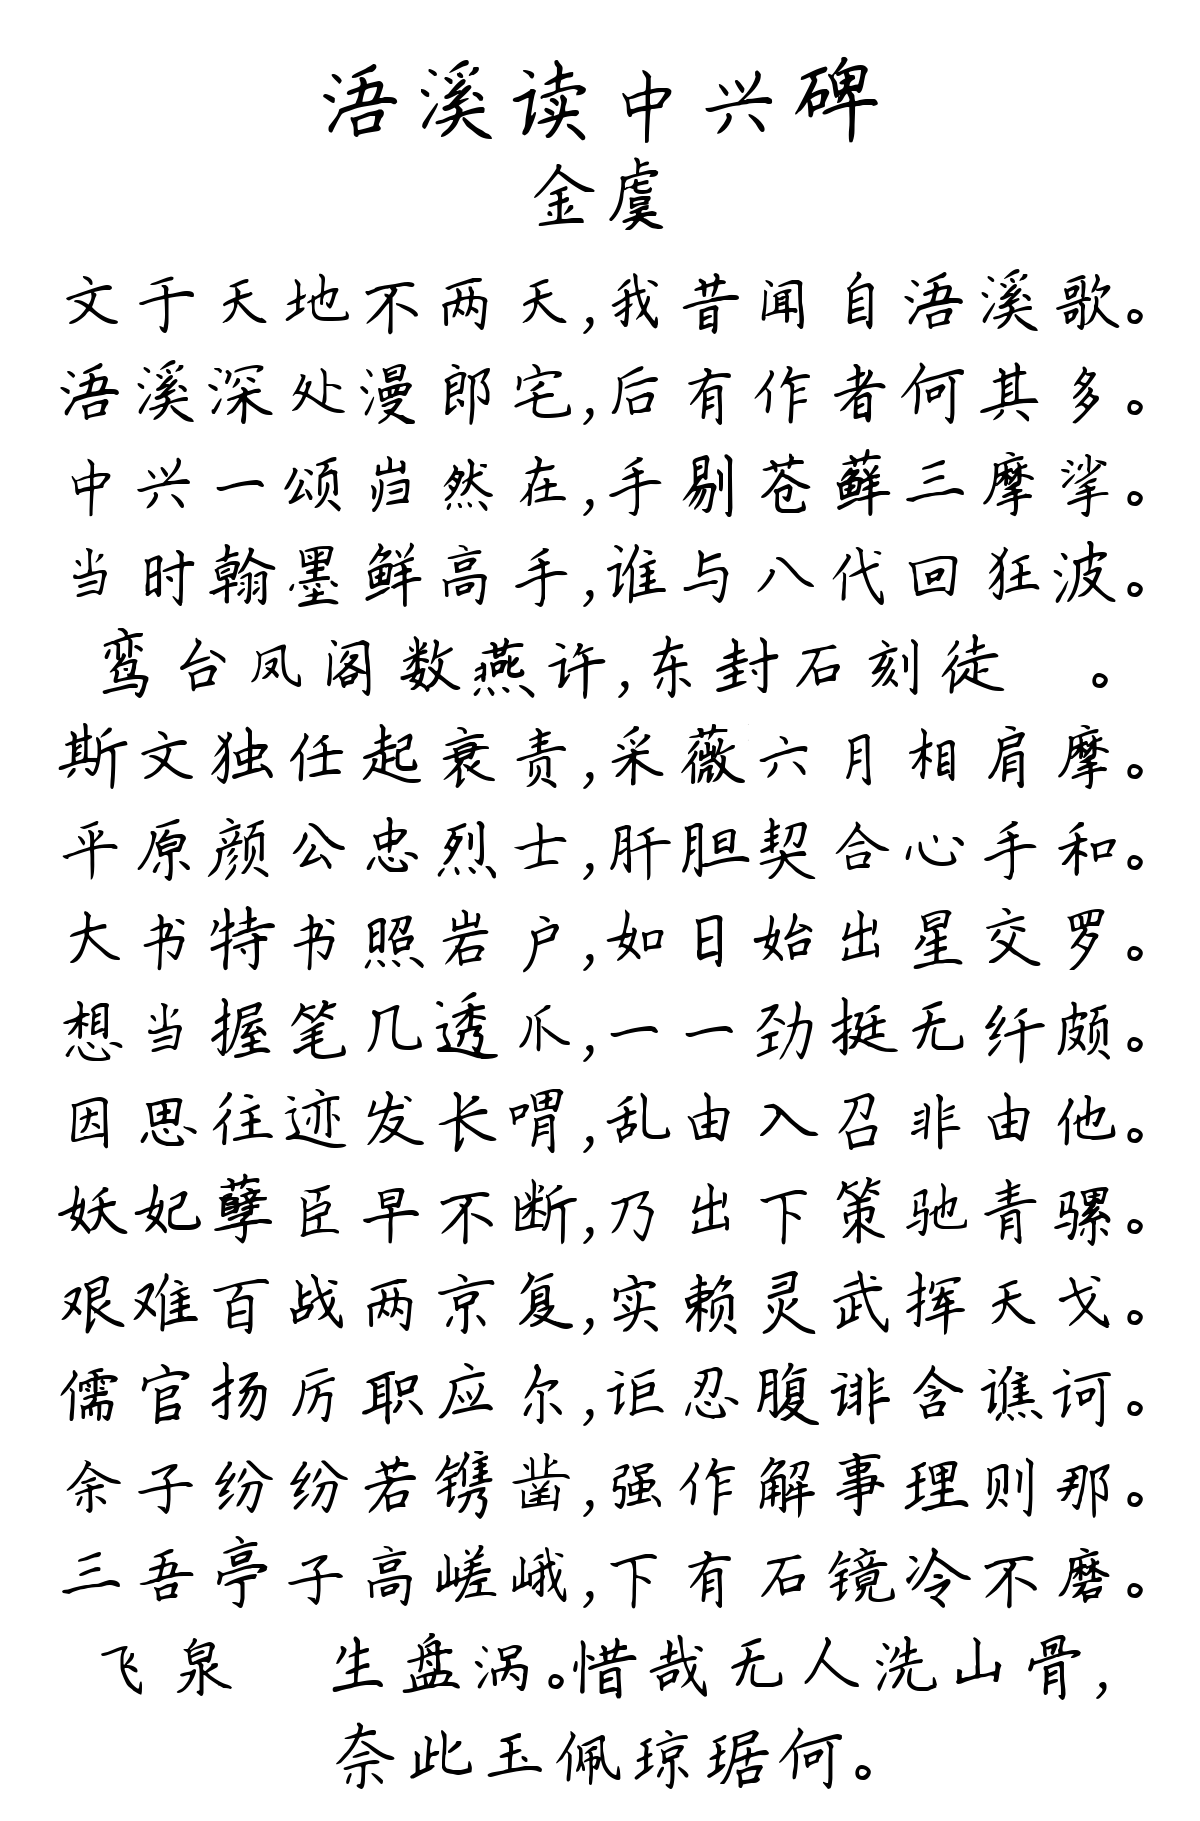 浯溪读中兴碑
金虞
文于天地不两天,我昔闻自浯溪歌。
浯溪深处漫郎宅,后有作者何其多。
中兴一颂岿然在,手剔苍藓三摩挲。
当时翰墨鲜高手,谁与八代回狂波。
鸾台凤阁数燕许,东封石刻徒 。
斯文独任起衰责,采薇六月相肩摩。
平原颜公忠烈士,肝胆契合心手和。
大书特书照岩户,如日始出星交罗。
想当握笔几透爪,一一劲挺无纤颇。
因思往迹发长喟,乱由入召非由他。
妖妃孽臣早不断,乃出下策驰青骡。
艰难百战两京复,实赖灵武挥天戈。
儒官扬厉职应尔,讵忍腹诽含谯诃。
余子纷纷若镌凿,强作解事理则那。
三吾亭子高嵯峨,下有石镜冷不磨。
飞泉 生盘涡。惜哉无人洗山骨,
奈此玉佩琼琚何。